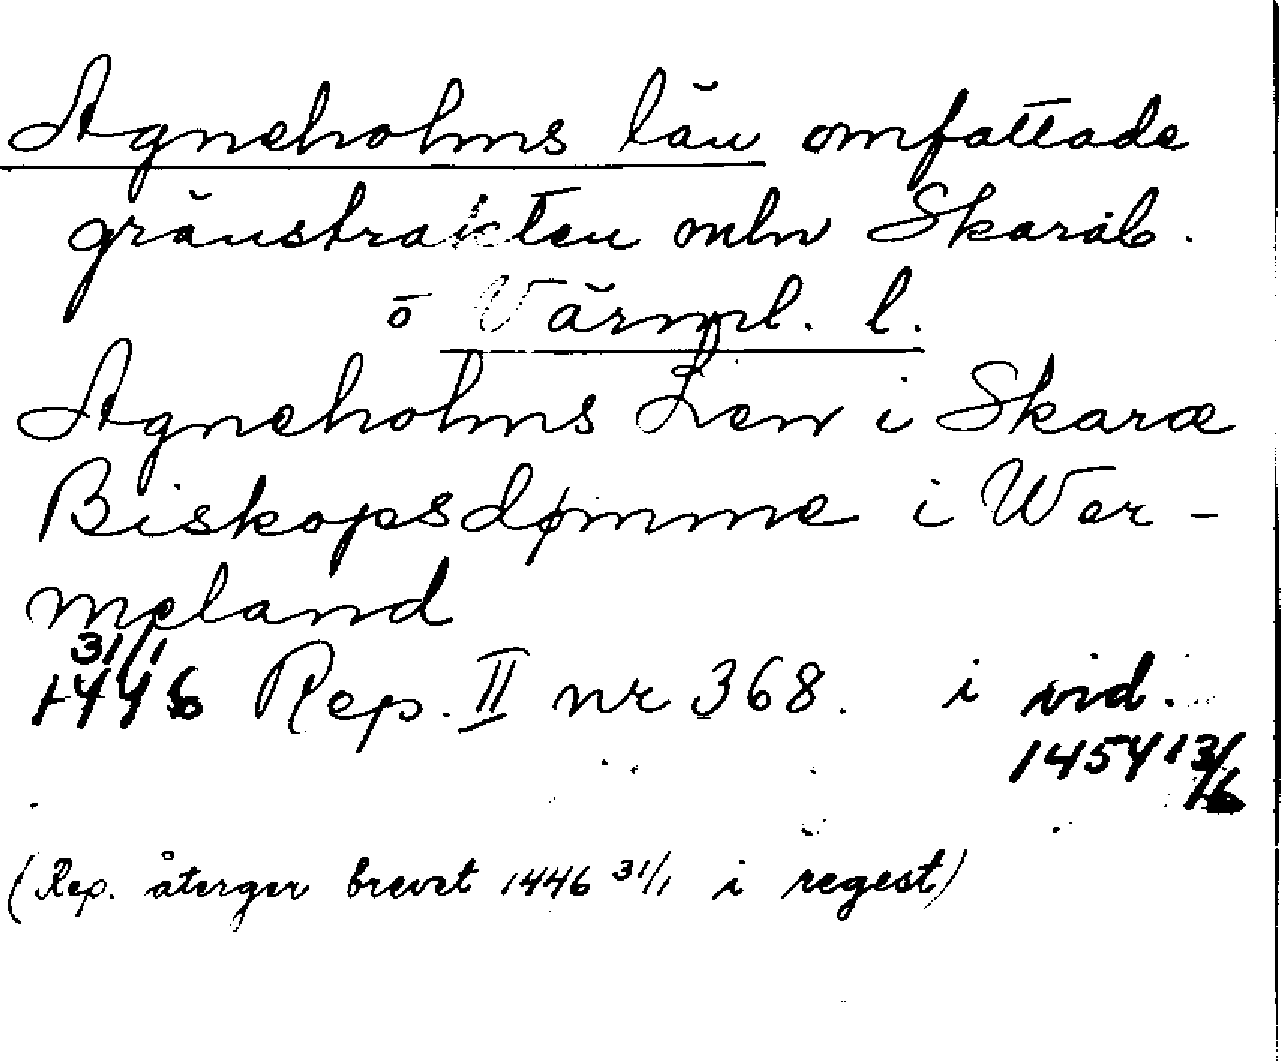 Agneholms län omfattade
gränstrakten mln Skarab.
o Värml. l.
Agneholms Len i Skaræ
Biskopsdømme i Wer-
meland
31/1
1446 Rep. II nr 368. i vid.
1454 13/6
(Rep. återger brevet 1446 31/1 i regest)